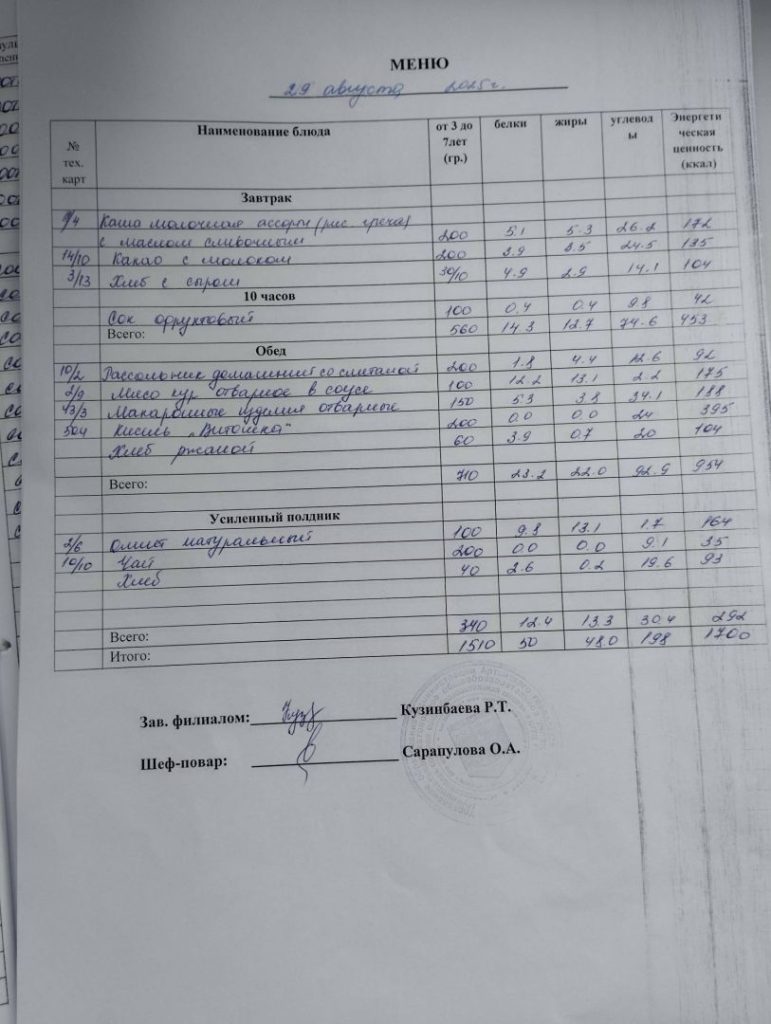 МЕНЮ
29 августа 2025г.
№ тех. карт Наименование блюда от 3 до 7лет (гр.) белки жиры углевод ы Энергети ческая ценность (ккал)
Завтрак
9/4 Каша молочная ассорти (рис. греча)
с маслом сливочным 200 5.1 5.3 26.2 172
14/10 Какао с молоком 200 3.9 3.5 24.5 135
3/13 Хлеб с сыром 30/10 4.9 2.9 14.1 104
10 часов
Сок фруктовый 100 0.4 0.4 9.8 42
Всего: 560 14.3 12.7 74.6 453
Обед
10/2 Рассольник домашний со сметаной 200 1.8 4.4 12.6 92
2/9 Мясо кур отварное в соусе 100 12.2 13.1 2.2 175
43/3 Макаронные изделия отварные 150 5.3 3.8 34.1 188
504 Кисиль „Витошка" 200 0.0 0.0 24 395
Хлеб ржаной 60 3.9 0.7 20 104
Всего: 710 23.2 22.0 92.9 954
Усиленный полдник
2/6 Омлет натуральный 100 9.8 13.1 1.7 164
10/10 Чай 200 0.0 0.0 9.1 35
Хлеб 40 2.6 0.2 19.6 93
Всего: 340 12.4 13.3 30.4 292
Итого: 1510 50 48.0 198 1700
Зав. филиалом: Кузинбаева Р.Т.
Шеф-повар: Сарапулова О.А.